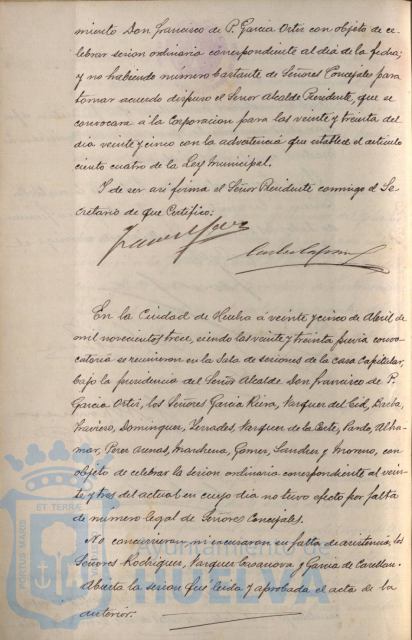 miento Don Francisco de P. Garcia Ortiz con objeto de ce-
lebrar sesion ordinaria correspondiente al dia de la fecha;
y no habiendo número bastante de Señores Concejales para
tomar acuerdo dispuso el Señor Alcalde Presidente, que se
convocara á la Corporacion para las veinte y treinta del
dia veinte y cinco con la advertencia que establece el artículo
ciento cuatro de la Ley Municipal.
Y de ser asi firma el Señor Presidente conmigo el Se-
cretario de que Certifico:
En la Ciudad de Huelva á veinte y cinco de Abril de
mil novecientos trece, siendo las veinte y treinta previa convo
catoria se reunieron en la Sala de sesiones de la casa Capitular,
bajo la presidencia del Señor Alcalde Don Francisco de P.
Garcia Ortiz, los Señores Garcia Riera, Vazquez del Cid, Barba,
Traviero, Dominguez, Serrades, Vazquez de la Corte, Pardo, Alha-
mar, Perez Arenas, Marchena, Gomez, Sanchez y Moreno, con
objeto de celebrar la sesion ordinaria correspondiente al vein-
te y tres del actual en cuyo dia no tuvo efecto por falta
de número legal de Señores Concejales.
No concurrieron ni escusaron su falta de asistencia, los
Señores Rodriguez, Vazquez Casanova y Garcia de Castellan.
Abierta la sesion fué leida y aprobada el acta de la
anterior.
ET TERRÆ
PORTUS MARIS
Ayuntamiento de
HUELVA